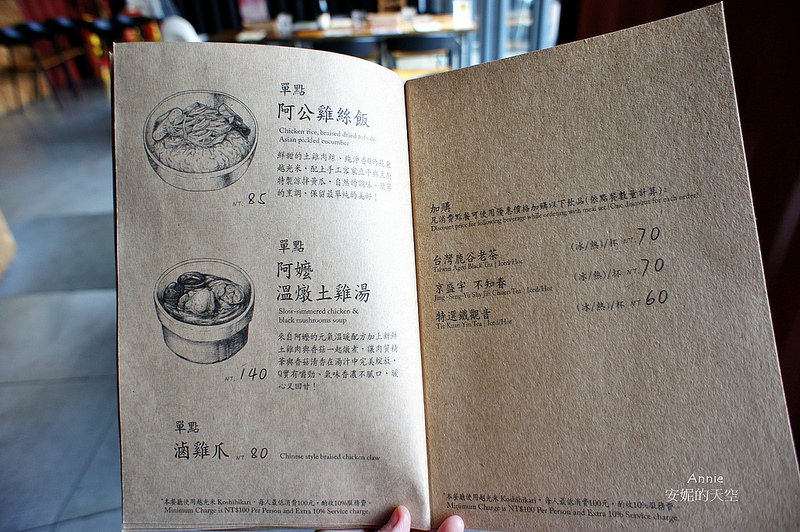 單點
阿公雞絲飯
Chicken rice, braised dried tofu &
Asian pickled cucumber
鮮甜的土雞肉絲、純淨香Q的花東
越光米，配上手工客家豆干與主廚
特製涼拌黃瓜，自然的調味、簡單
的烹調，保留最單純的美好！
NT. 85
單點
阿嬤
溫燉土雞湯
Slow-simmered chicken &
black mushrooms soup
來自阿嬤的元氣溫暖配方加上新鮮
土雞肉與香菇一起燉煮，讓肉質精
華與香菇清香在湯汁中完美綻放，
Q實有嚼勁、氣味香濃不膩口，暖
心又回甘！
NT. 140
單點
滷雞爪 NT. 80 Chinese style braised chicken claw
*本餐廳使用越光米 Koshihikari，每人最低消費100元，酌收10%服務費。
Minimum Charge is NT$100 Per Person and Extra 10% Service charge.
加購
凡消費點餐可使用優惠價格加購以下飲品(依點餐數量計算)：
Discount price for following beverage while ordering with meal set ( One discount for each order)
台灣鹿谷老茶 (冰/熱)/杯 NT 70
Taiwan Aged Black Tea | Iced/Hot
京盛宇 不知春 (冰/熱)/杯 NT 70
Jing-Seng-Yu Shy Jin Chuan Tea | Iced/Hot
特選鐵觀音 (冰/熱)/杯 NT 60
Tie Kuan Yin Tea | Iced/Hot
*本餐廳使用越光米 Koshihikari，每人最低消費100元，酌收10%服務費。
Minimum Charge is NT$100 Per Person and Extra 10% Service charge.
Annie
安妮的天空